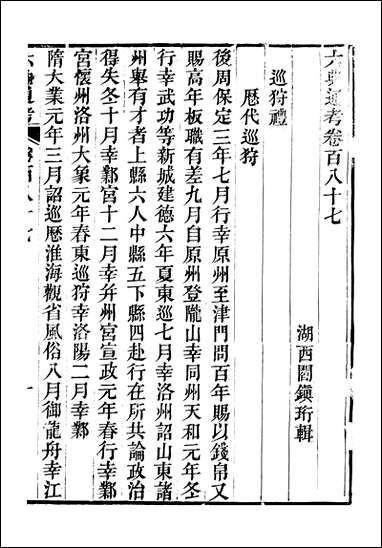 六典通考卷百八十七
湖西閻鎭珩輯
巡狩禮
歷代巡狩
後周保定三年七月行幸原州至津門問百年賜以錢帛又
賜高年板職有差九月自原州登隴山幸同州天和元年冬
行幸武功等新城建德六年夏東巡七月幸洛州詔山東諸
州舉有才者上縣六人中縣五下縣四赴行在所共論政治
得失冬十月幸鄴宮十二月幸并州宮宣政元年春行幸鄴
宮懷州洛州大象元年春東巡狩幸洛陽二月幸鄴
隋大業元年三月詔巡歷淮海觀省風俗八月御龍舟幸江
卷百八十七
一